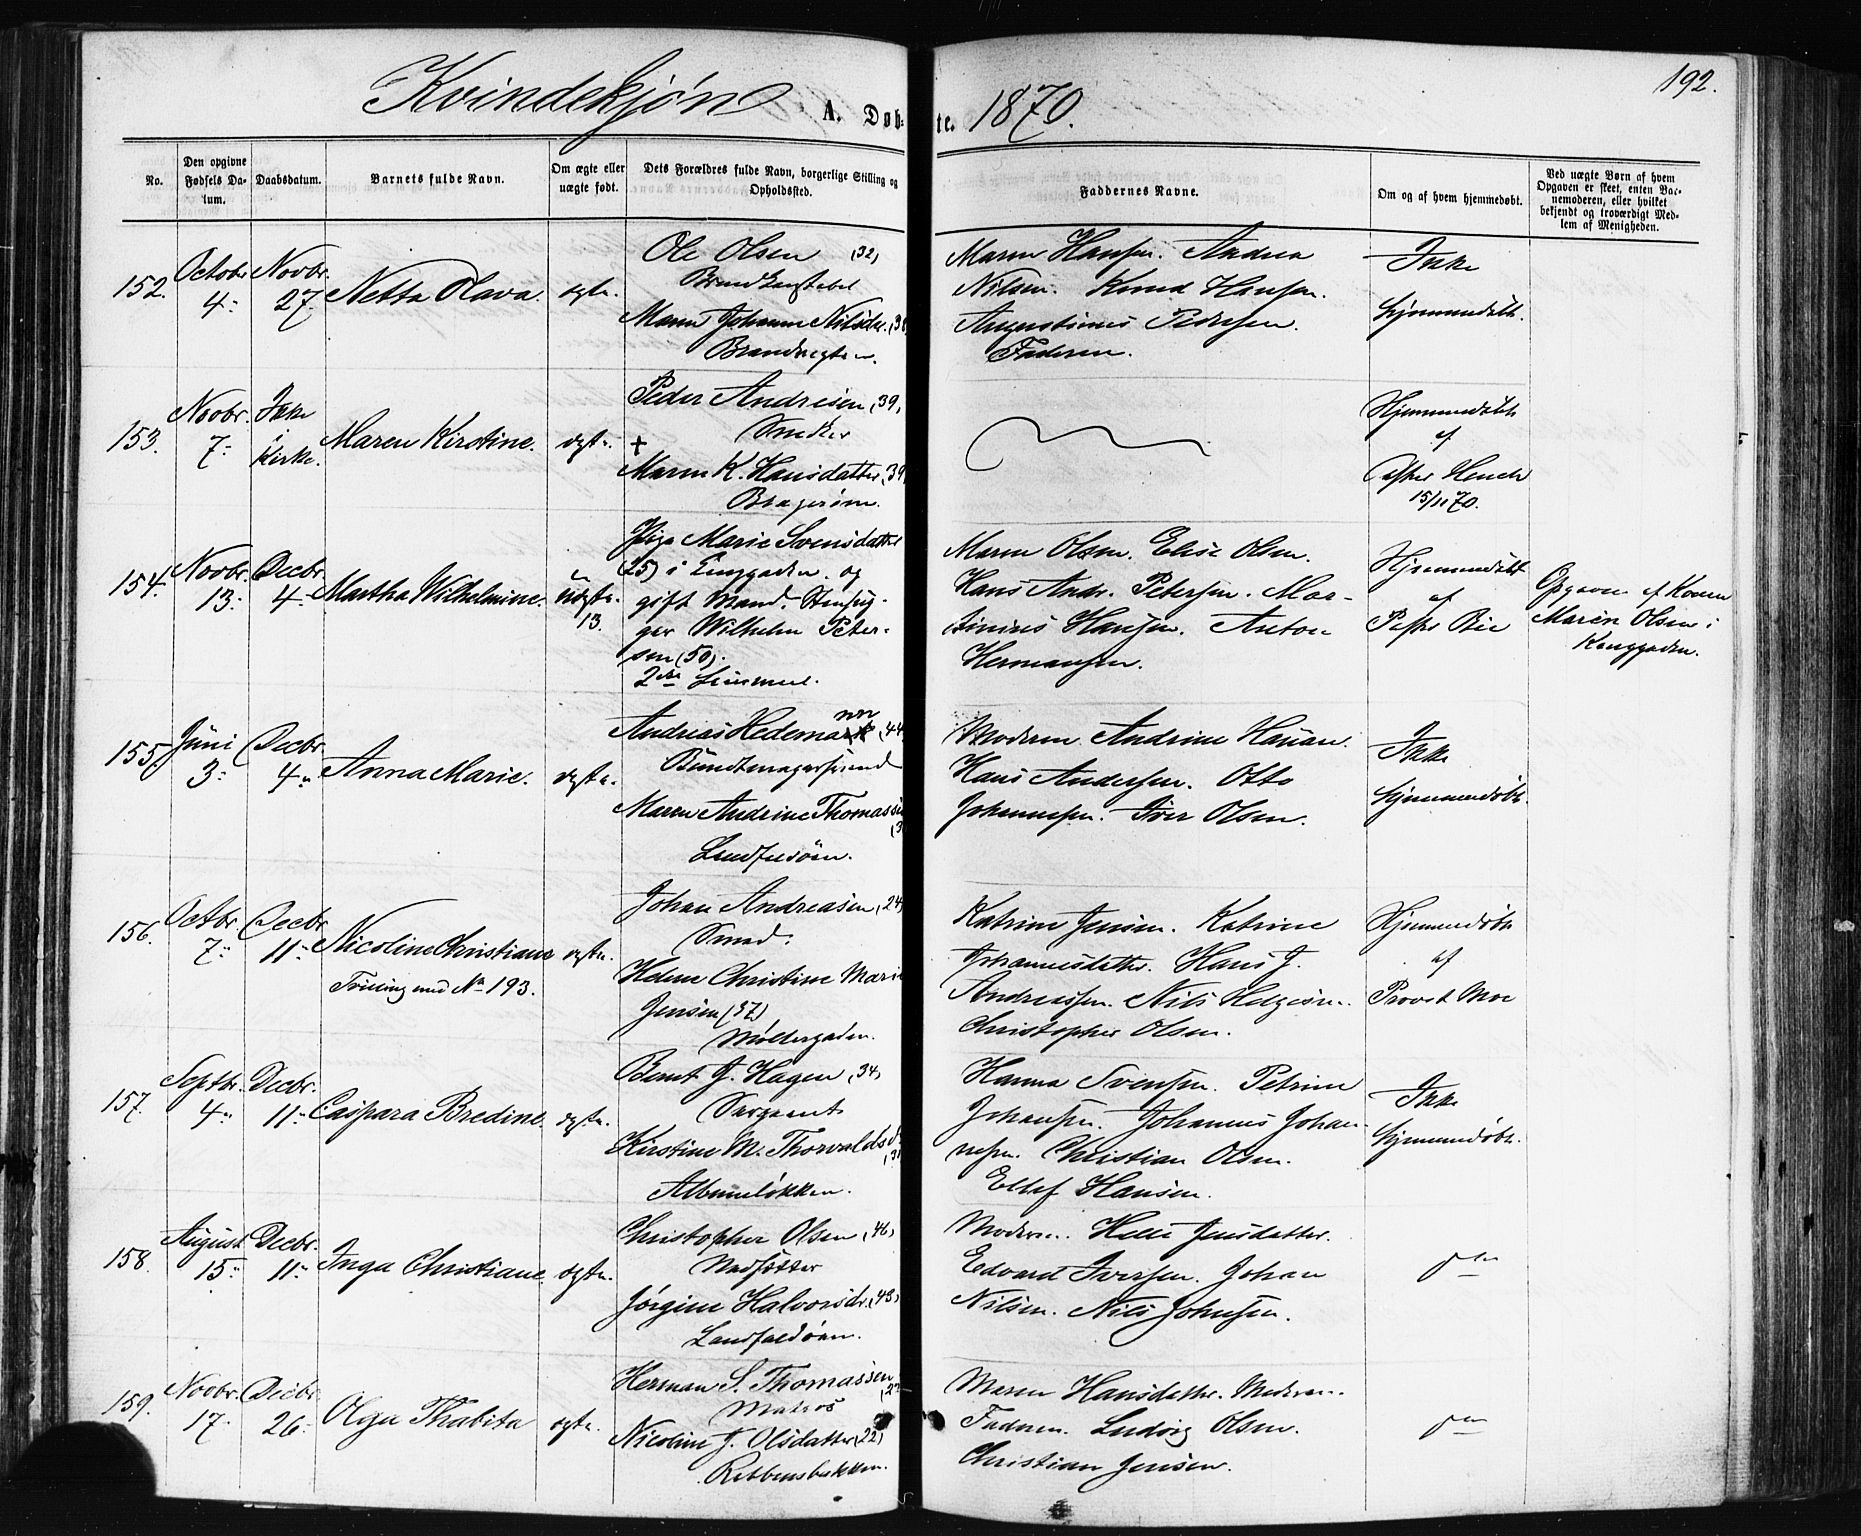 192.
Kvindekjøn A. Døb- te. 1870.
No.
Den opgivne Fødsels Da- tum.
Daabsdatum.
Barnets fulde Navn.
Om ægte eller uægte født.
Dets Forældres fulde Navn, borgerlige Stilling og Opholdssted.
Faddernes Navne.
Om og af hvem hjemmedøbt.
Ved uægte Børn af hvem Opgaven er skeet, enten Bar- nemoderen, eller hvilket bekjendt og troværdigt Med- lem af Menigheden.
152.
Octobr 4
Novbr. 27
Netta Olava.
ægte.
Ole Olsen (32)
Maren Johanne Nilsdr.
Maren Hansen. Andrea
Nilsen. Knud Hansen.
Augustinus Pedersen.
Faderen.
Ikke
hjemmedøbt.
153.
Novbr. 7
Ikke i Kirke.
Maren Kirstine.
ægte.
Peder Andresen (39)
Snedker
+
Maren K. Hansdatter (39
Bragerøen.
Hjemmedøbt
af
15/11 70.
154.
Novbr 13
Decbr 4
Martha Wilhelmine.
uægte.
13.
Pige Marie Svensdatter
25) i Enggaden og
gift Mand. Stenhug-
ger Wilhelm Peter-
sen (50).
2det Leiermaal.
Maren Olsen. Elise Olsen.
Hans Andr. Petersen. Mar-
tinius Hansen. Anton
Hermansen.
Hjemmedøbt
af
Opgaven af Konen
Maren Olsen i
155.
Juni 3
Decbr 4
Anna Marie.
ægte.
Andreas Hedemann (44
Bundtmagersvend
Maren Andrine Thomassen
Landfaldøen.
Moderen Andrine Hansen.
Hans Andersen. Otto
Johannesen. Iver Olsen.
Ikke
hjemmedøbt.
156.
Octbr. 7
Decbr 11
Nicoline Christiane
Tvilling med No 193.
ægte.
Johan Andreasen (24)
Smed.
Helene Christine Marie
Jensen (37)
Møllergaden.
Katrine Jensen. Katrine
Johannesdatter. Hans J.
Andreassen. Nils Helgesen.
Christopher Olsen.
Hjemmedøbt
af
Provst Moe
157.
Septbr. 4
Decbr. 11
Caspara Bredine.
ægte.
Bernt J. Hagen (34)
Sergeant
Kirstine M. Thorvaldsd.
Albumløkken.
Hanna Svensen. Petrine
Johansen. Johannes Johan-
nesen. Christian Olsen.
Ellef Hansen.
Ikke
hjemmedøbt.
158.
August 15
Decbr. 11
Inga Christiane
ægte.
Christopher Olsen (46)
Jørgine Halvorsdr. (43)
Landfaldøen.
Moderen. Helle Jensdatter.
Edvard Iversen. Johan
Nilsen. Nils Johnsen.
do
159.
Novbr. 17
Decbr. 26
Olga Thabita
ægte.
Herman S. Thomassen
Matros
Nicoline J. Olsdatter (22)
Ribbensbakken.
Maren Hansdatter. Moderen.
Faderen. Ludvig Olsen.
Christian Jensen.
do